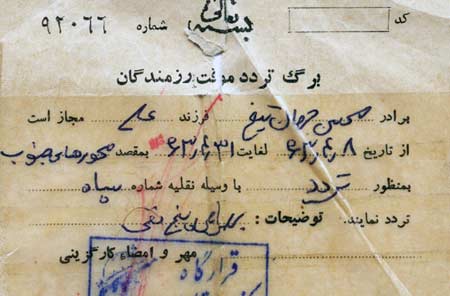 بسمه تعالی
کد
شماره ۹۲۰۶۶
برگ تردد موقت رزمندگان
برادر محسن جوان تیغ فرزند علی مجاز است
از تاریخ ۶۳/۴/۸ لغایت ۶۳/۴/۳۱ بمقصد محورهای جنوب
بمنظور تردد با وسیله نقلیه شماره سپاه
تردد نمایند. توضیحات :
مهر و امضاء کارگزینی
قرارگاه